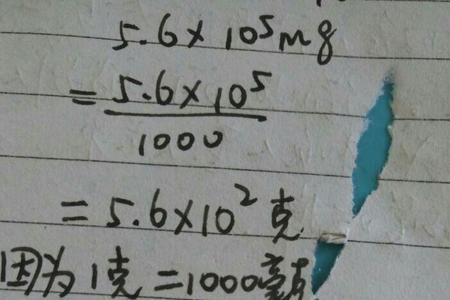 5.6×10⁵mg
= 5.6×10⁵
1000
= 5.6×10² 克
因为 1克 =1000毫克